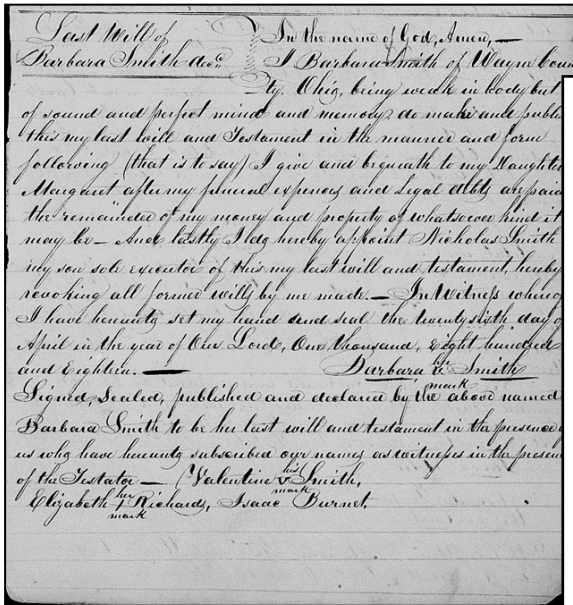 Last Will of
Barbara Smith decd
In the name of God, Amen, —
I Barbara Smith of Wayne Coun
ty, Ohio, being weak in body but
of sound and perfect mind and memory, do make and publi
this my last will and Testament in the manner and form
following (that is to say) I give and bequeath to my Daughter
Margaret after my funeral expences and Legal debts are paid
the remainder of my money and property of whatsoever kind it
may be — And lastly I do hereby appoint Nicholas Smith
my son sole executor of this my last will and testament, hereby
revoking all former wills by me made. — In Witness whereo
I have hereunto set my hand and seal the twenty sixth day o
April in the year of Our Lord, One thousand, Eight hundred
and Eighteen. — Barbara her mark Smith
Signed, Sealed, published and declared by the above named
Barbara Smith to be her last will and testament in the presence o
us who have hereunto subscribed our names as witnesses in the presen
of the Testator — Valentine his mark Smith,
Elizabeth her mark Richards, Isaac Burnet.